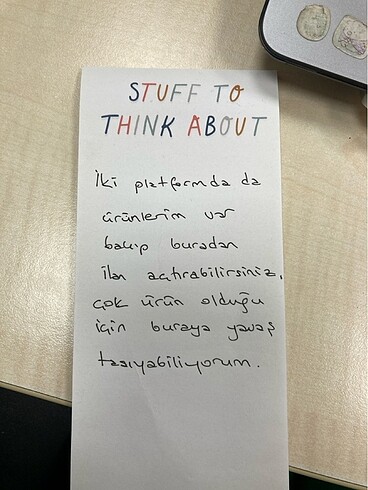 STUFF TO
THINK ABOUT
İki platformda da
ürünlerim var
bakıp buradan
ilan açtırabilirsiniz.
çok ürün olduğu
için buraya yavaş
taşıyabiliyorum.